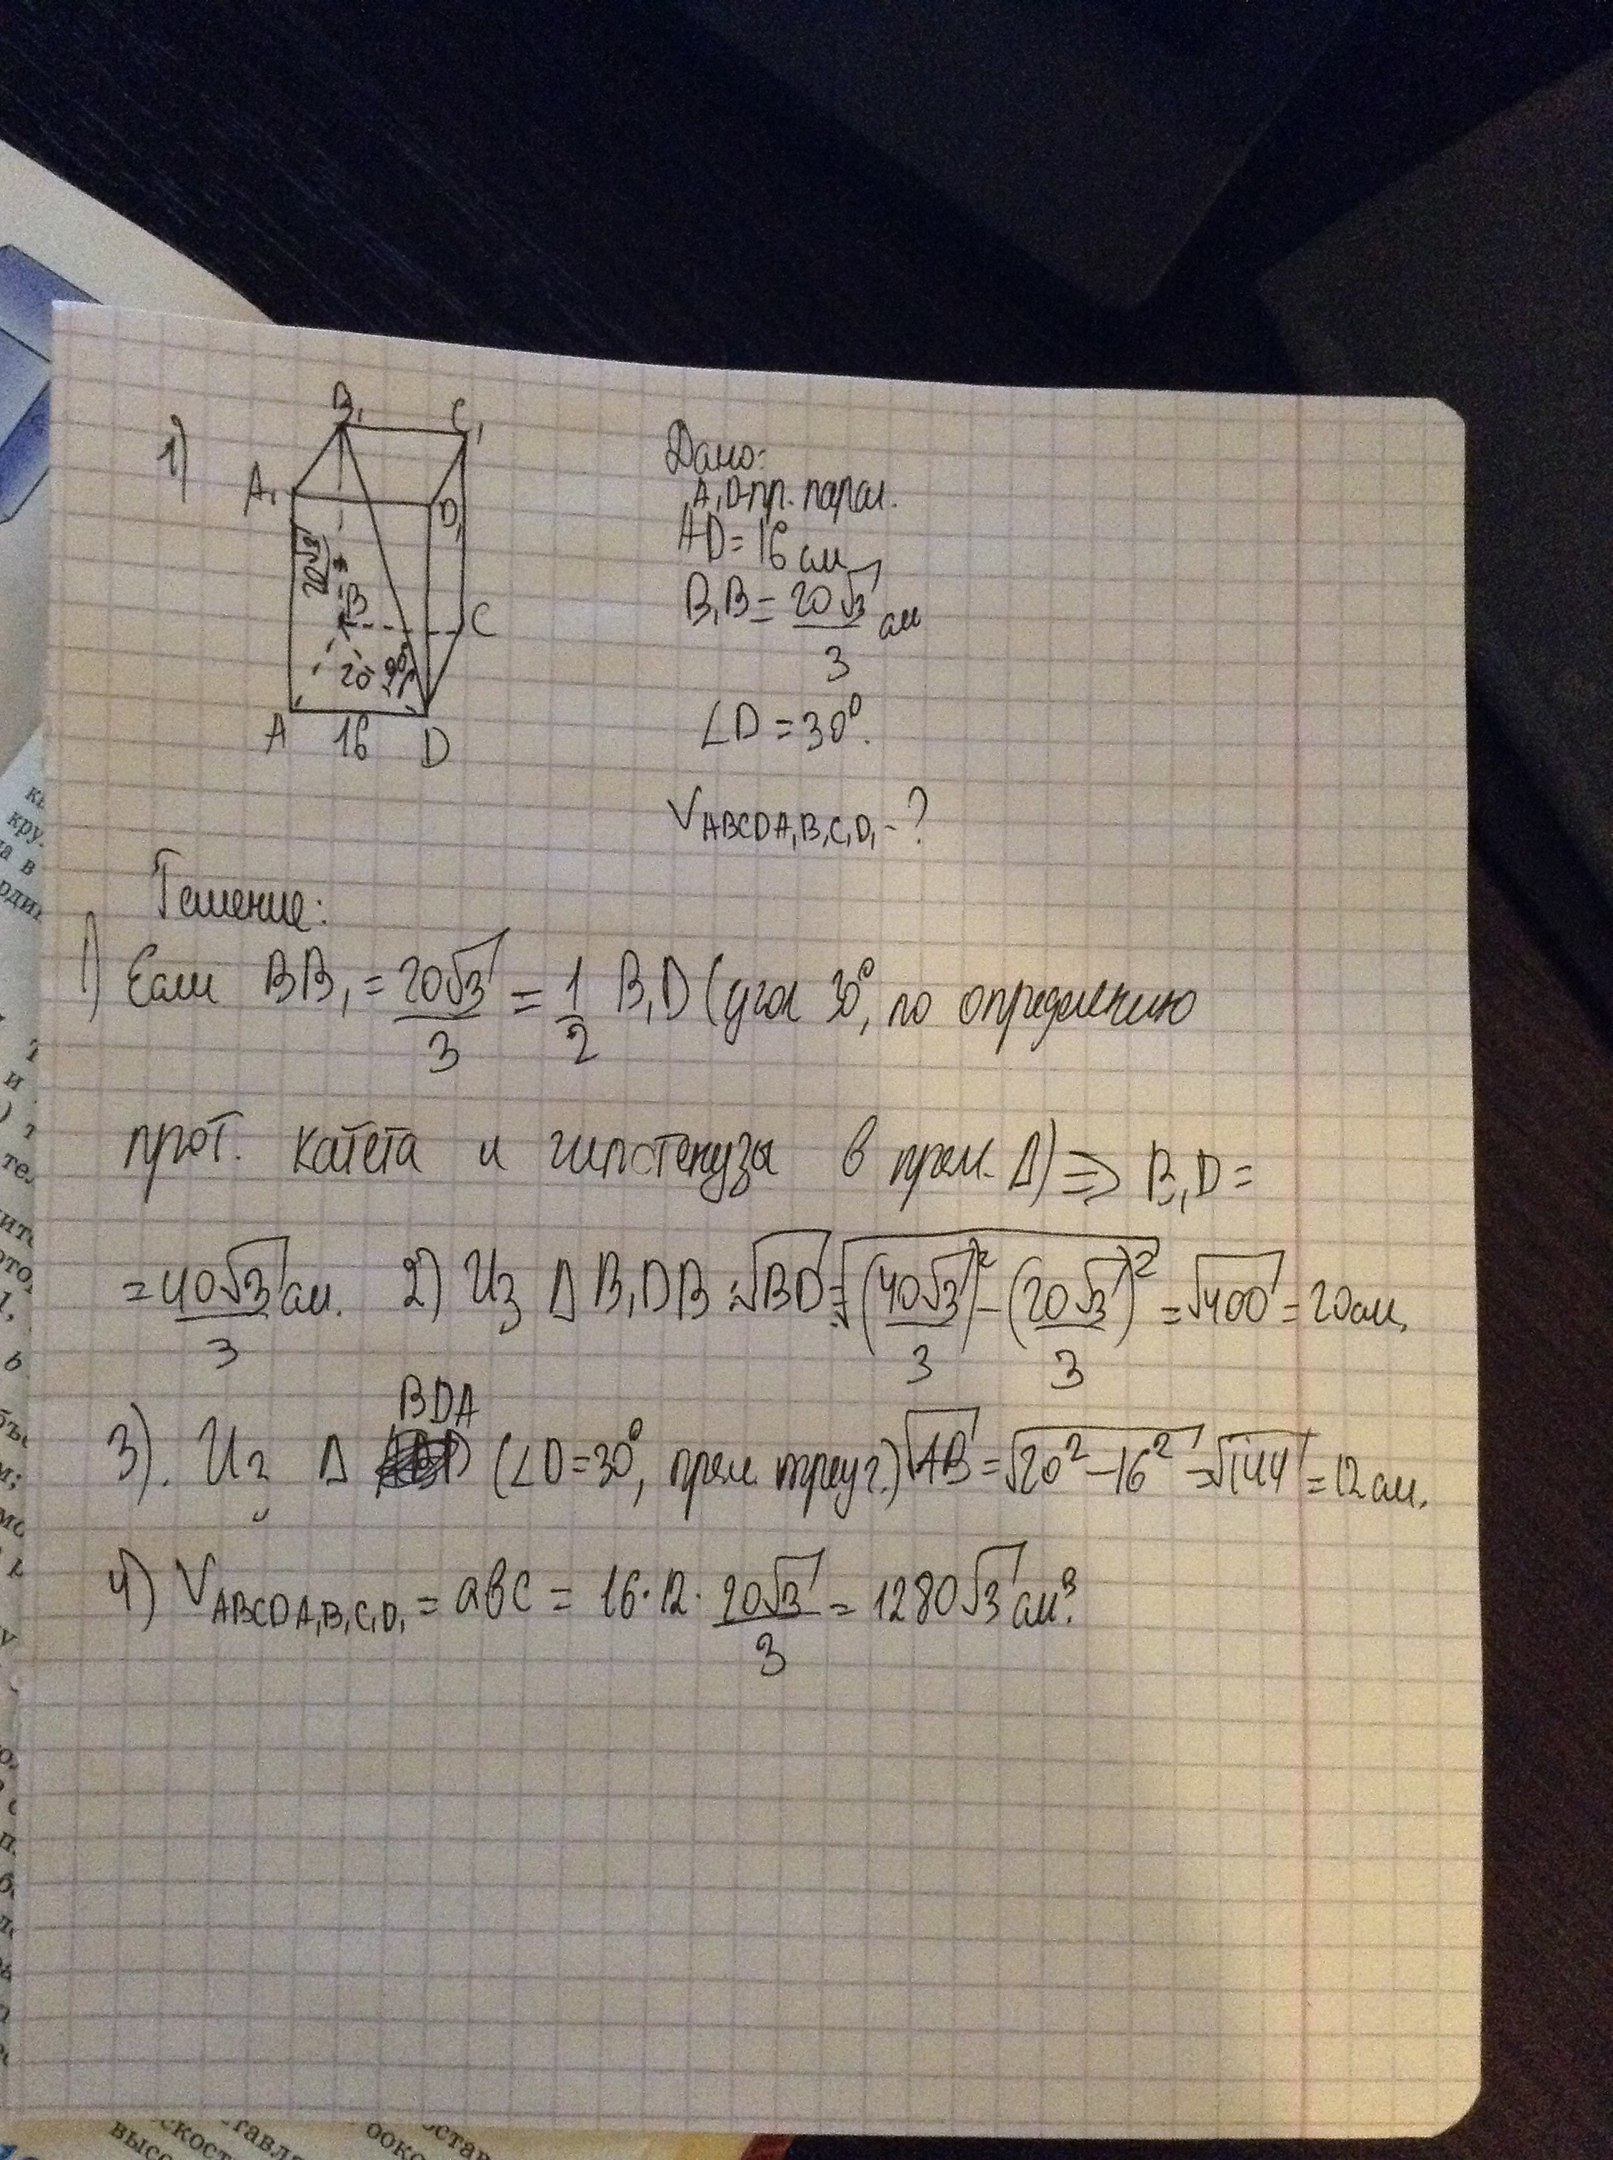 1)
B₁ C₁
A₁ D₁
20√3
3
B C
20 30°
A 16 D
Дано:
A₁D-пр. парал.
AD = 16 см
B₁B = 20√3/3 см
∠D = 30°.
V ABCDA₁B₁C₁D₁ - ?
Решение:
1) Если BB₁ = 20√3/3 = 1/2 B₁D (угол 30°, по определению
прот. катета и гипотенузы в прям. Δ) ⇒ B₁D =
= 40√3/3 см. 2) Из Δ B₁DB : √BD = √(40√3/3)² - (20√3/3)² = √400 = 20 см.
3). Из Δ BDA (∠D = 30°, прям. треуг.) √AB = √20² - 16² = √144 = 12 см.
4) V ABCDA₁B₁C₁D₁ = авс = 16·12·20√3/3 = 1280√3 см³.
кру
а в
рди
и
те
ото
в
объ
м;
ставл
скост
высо